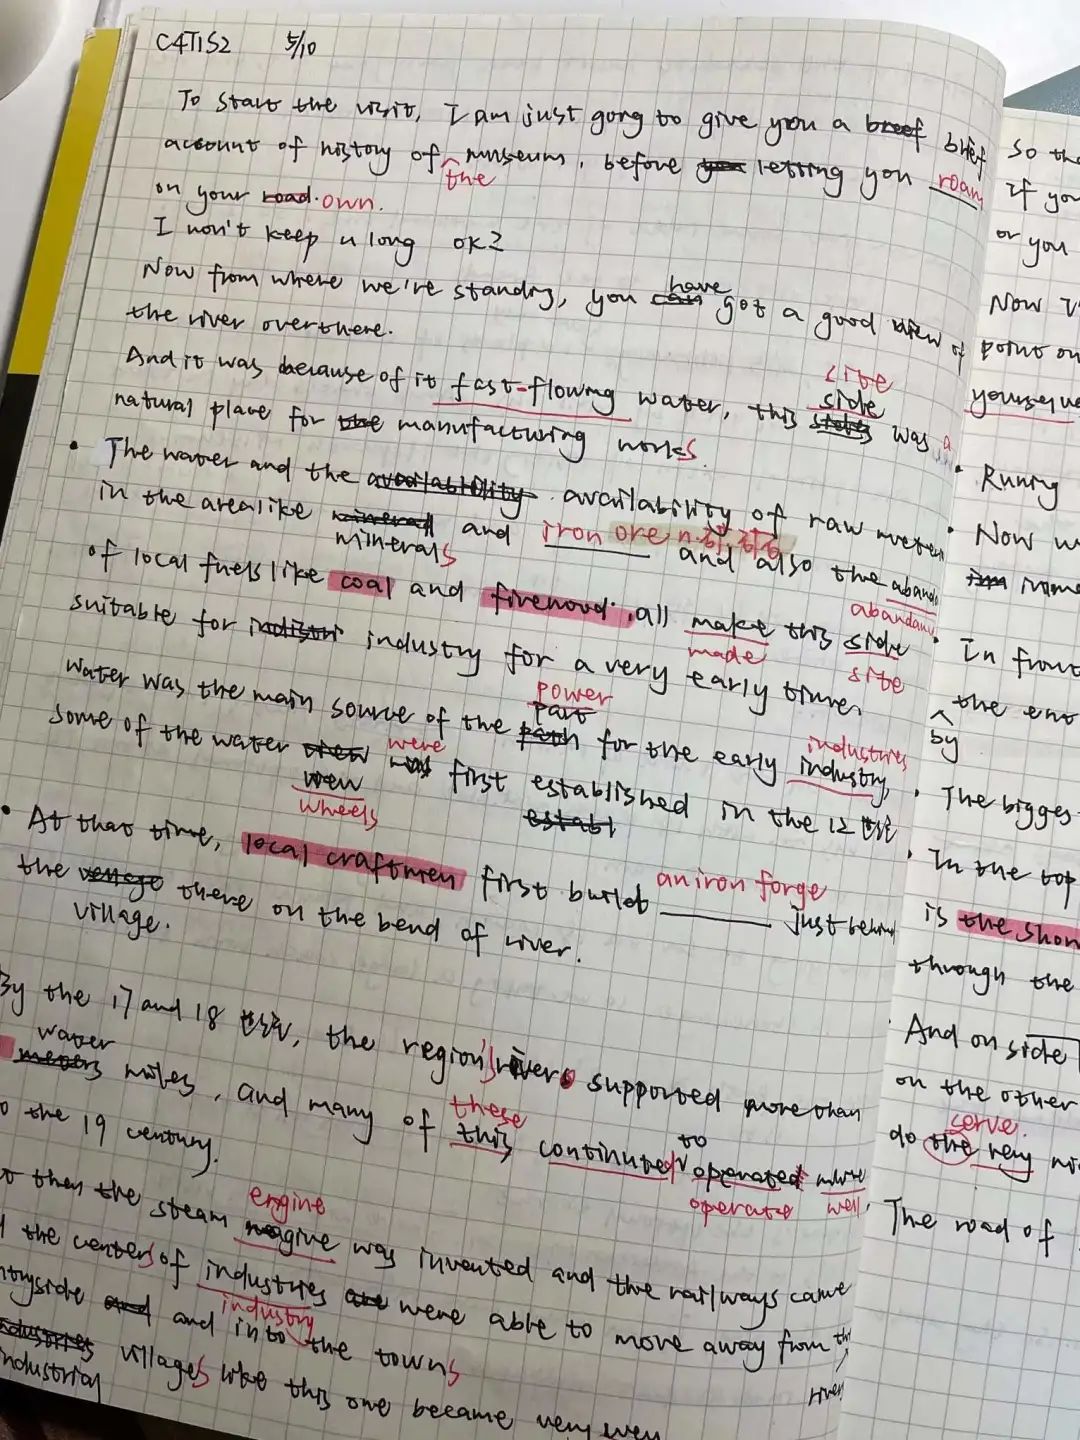 C4T1S2 5/10
To start the visit, I am just gong to give you a breef brief
account of history of the museum, before you letting you roam
on your road. own.
I won't keep u long ok?
Now from where we're standing, you can have got a good view of
the river over there.
And it was because of it fast-flowing water, this sides side site was a
natural place for the manufacturing works.
• The water and the availability availability of raw
in the area like mineral minerals and iron ore and also the
of local fuels like coal and firewood. all make made this side site
suitable for industri industry for a very early time.
Water was the main source of the path part power for the early industry industries
some of the water view wew wheels was were first established establ in the 12 世纪
• At that time, local craftmen first build an iron forge just behind
the venege there on the bend of river.
village.
By the 17 and 18 世纪, the region's rivers supported more than
meters water miles, and many of this these continuted to operated operate well.
the 19 century.
then the steam engine was invented and the railways came
the centers of industries industry are were able to move away from the
river
and and into the towns
industries villages like this one became very
industrial
So the
If you
or you
Now
point on
yourselve
• Runing
• Now w
im
• In front
the ent
by
• The bigges
• In the top
is the shor
through the
And on side
on the other
do the very serve.
The road of